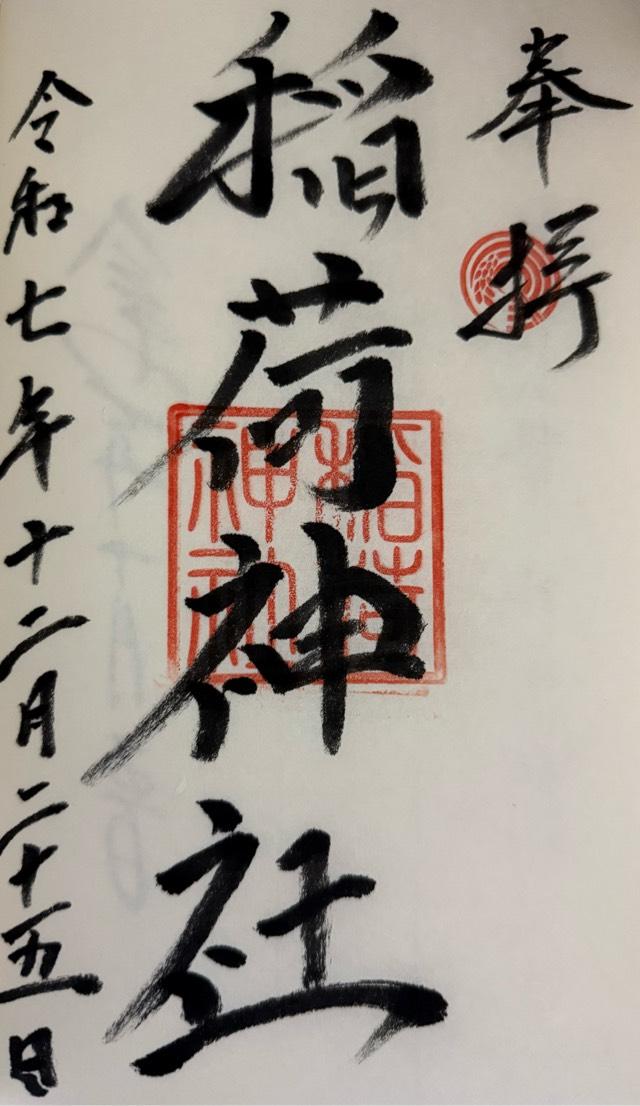 奉拝
稲荷神社
稲荷神社
令和七年十二月二十五日